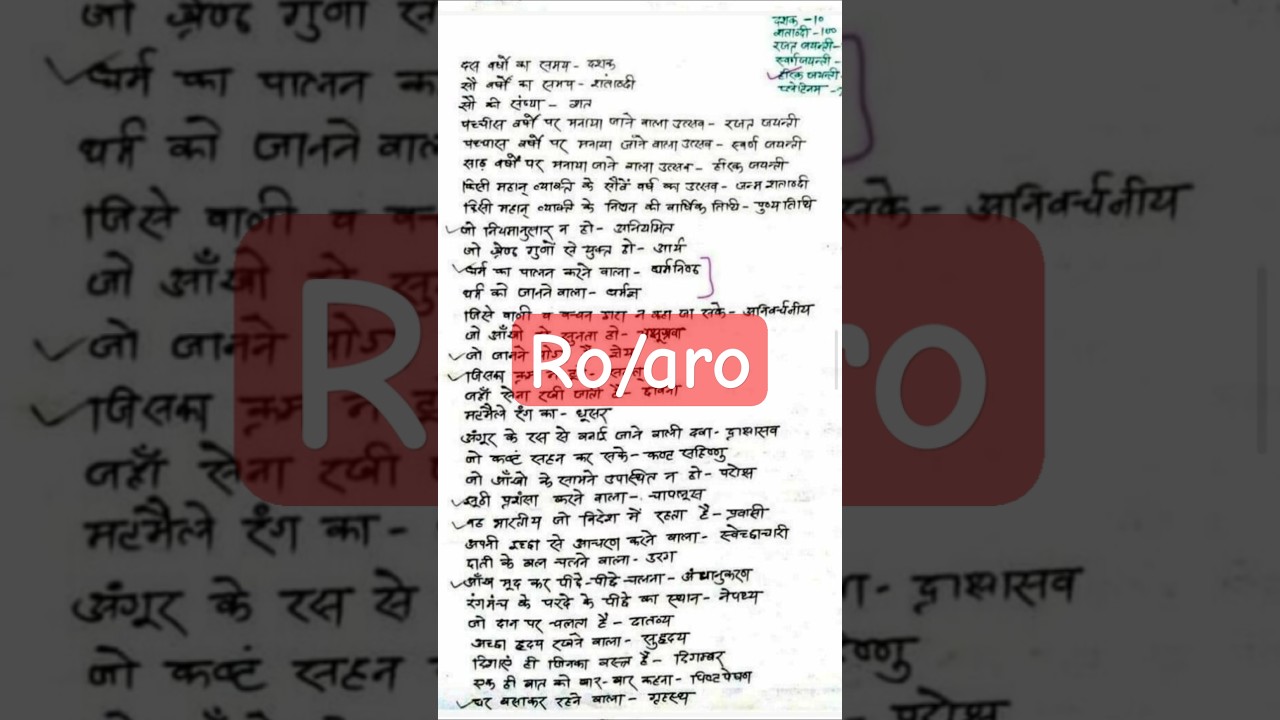 दशक -10
शताब्दी -100
रजत जयन्ती-
स्वर्ण जयन्ती -
हीरक जयन्ती-
प्लेटिनम -
दस वर्षों का समय - दशक
सौ वर्षों का समय - शताब्दी
सौ की संख्या - शत
पच्चीस वर्षों पर मनाया जाने वाला उत्सव - रजत जयन्ती
पच्चास वर्षों पर मनाया जाने वाला उत्सव - स्वर्ण जयन्ती
साठ वर्षों पर मनाया जाने वाला उत्सव - हीरक जयन्ती
किसी महान् व्यक्ति के सौवें वर्ष का उत्सव - जन्म शताब्दी
किसी महान् व्यक्ति के निधन की वार्षिक तिथि - पुण्य तिथि
जो नियमानुसार न हो - अनियमित
जो श्रेष्ठ गुणों से युक्त हो - आर्य
धर्म का पालन करने वाला - धर्मनिष्ठ
धर्म को जानने वाला - धर्मज्ञ
जिसे वाणी व वचन द्वारा न कहा जा सके - अनिवर्चनीय
जो आँखों से सुनता हो -
जो जानने
Ro/aro
जिसका क्रम न
जहाँ सेना रखी जाती है -
मटमैले रंग का - धूसर
अंगूर के रस से बनाई जाने वाली दवा - द्राक्षासव
जो कष्टं सहन कर सके - कष्ट सहिष्णु
जो आँखो के सामने उपस्थित न हो - परोक्ष
झूठी प्रशंसा करने वाला - चापलूस
वह भारतीय जो विदेश में रहता है - प्रवासी
अपनी इच्छा से आचरण करने वाला - स्वेच्छाचारी
छाती के बल चलने वाला - उरग
आँख मूद कर पीछे-पीछे चलना - अंधानुकरण
रंगमंच के परदे के पीछे का स्थान - नेपथ्य
जो दान पर चलता है - दातव्य
अच्छा हृदय रखने वाला - सुहृदय
दिशाएं ही जिनका वस्त्र है - दिगम्बर
एक ही बात को बार-बार कहना - पिष्टपेषण
घर बसाकर रहने वाला - गृहस्थ